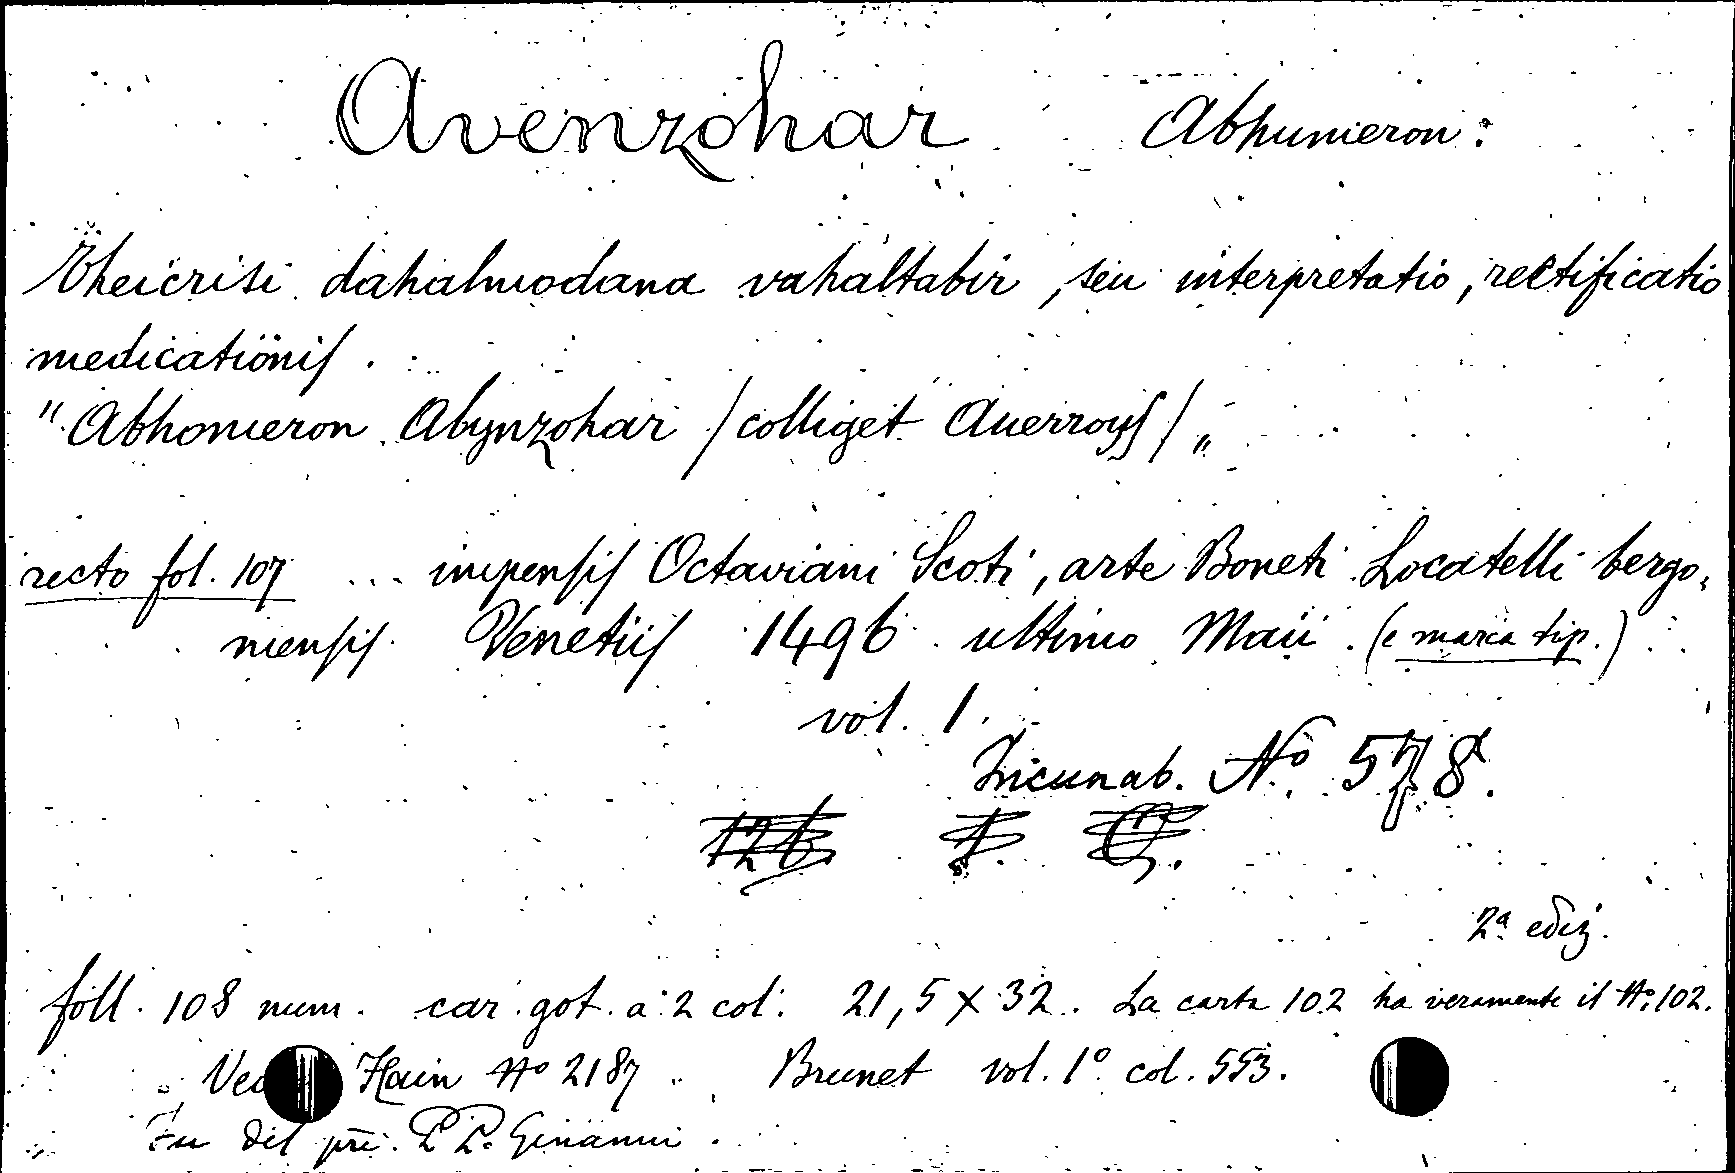 Avenzohar Abhumeron:
Theicrisi dahalmodana vahaltabir, seu interpretatio, rectificatio
medicationis.
"Abhomeron Abynzohar / colliget Auerroys / "
recto fol. 107 ... impensis Octaviani Scoti, arte Boneti Locatelli bergo,
mensis. Venetiis 1496 ultimo Maii. (e marca tip.)
vol. 1.
Incunab. No. 578.
126
2a ediz.
foll. 108 num. car. got. a 2 col. 21,5 x 32. La carta 102 ha veramente il No. 102.
Hain No 2187. Brunet vol. 1o col. 553.
Fu del pri. P. P. Ginanni.